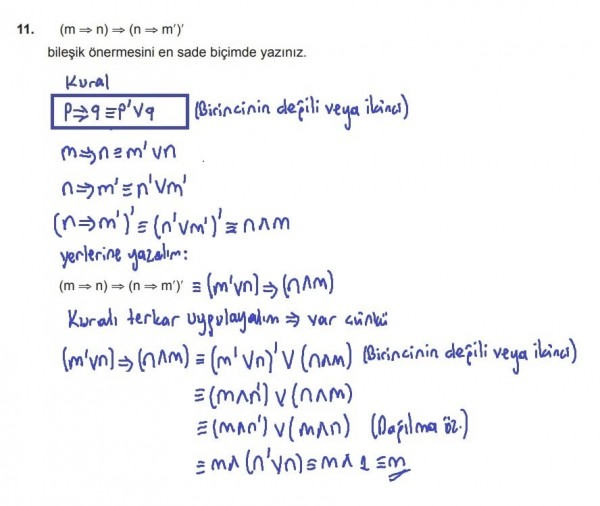 11. (m ⇒ n) ⇒ (n ⇒ m')'
bileşik önermesini en sade biçimde yazınız.
Kural
P⇒q ≡ p'∨q (Birincinin değili veya ikinci)
m⇒n ≡ m'∨n
n⇒m' ≡ n'∨m'
(n⇒m')' ≡ (n'∨m')' ≡ n∧m
yerlerine yazalım:
(m ⇒ n) ⇒ (n ⇒ m')' ≡ (m'∨n) ⇒ (n∧m)
Kuralı terkar uygulayalım ⇒ var çünkü
(m'∨n) ⇒ (n∧m) ≡ (m'∨n)' ∨ (n∧m) (Birincinin değili veya ikinci)
≡ (m∧n') ∨ (n∧m)
≡ (m∧n') ∨ (m∧n) (Dağılma öz.)
≡ m∧(n'∨n) ≡ m∧1 ≡ m